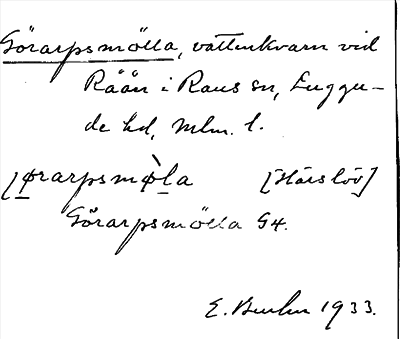 Görarpsmölla, vattenkvarn vid
Råån i Raus sn, Luggu-
de hd, Mlm. l.
[ørarpsmø̀la [Härslöv]
Görarpsmölla G4.
E. 1933.